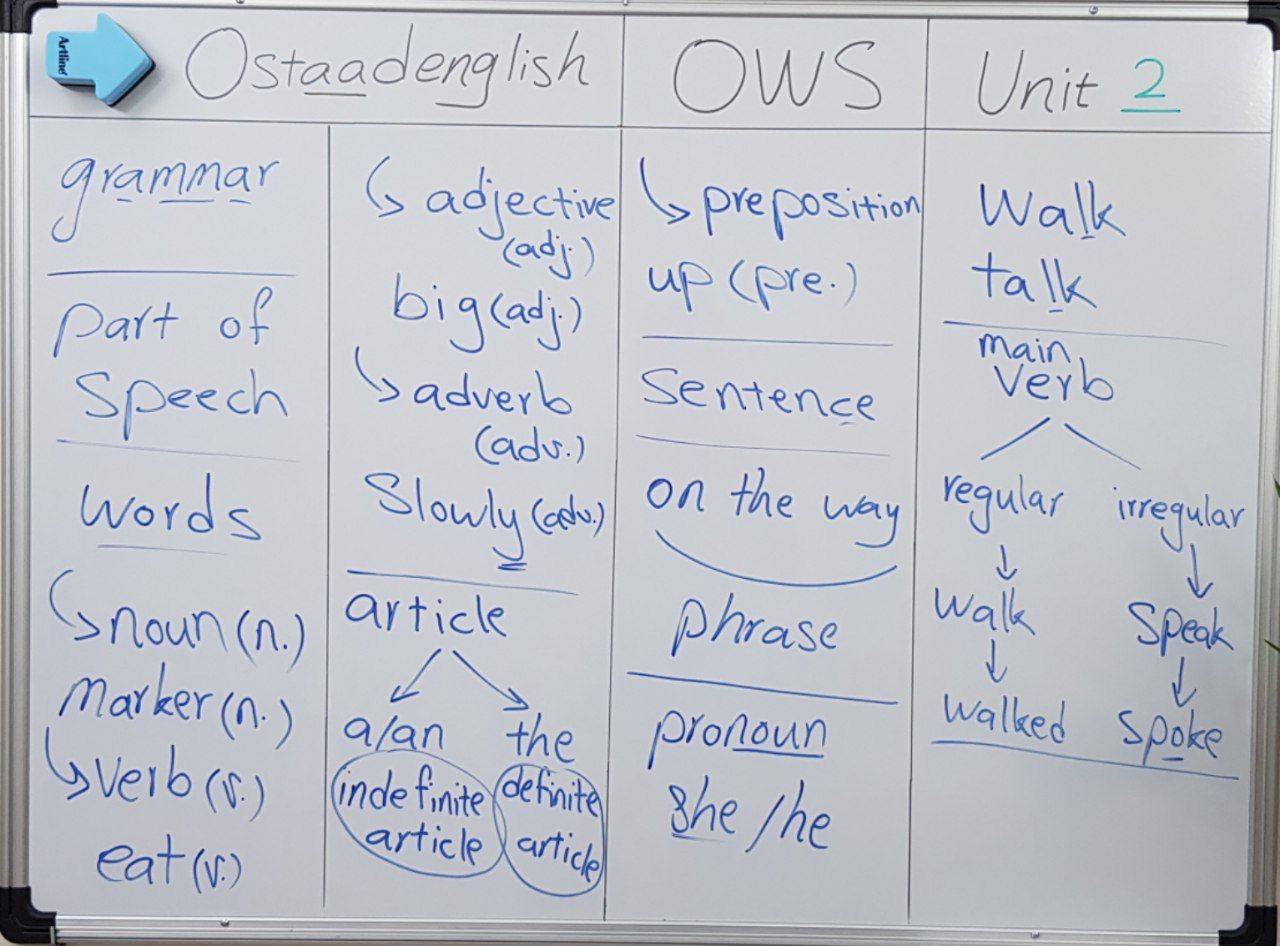 Artline
Ostaadenglish
OWS
Unit 2
grammar
part of
speech
words
noun (n.)
marker (n.)
verb (v.)
eat (v.)
adjective
(adj.)
big (adj.)
adverb
(adv.)
Slowly (adv.)
article
a/an the
indefinite
article
definite
article
preposition
up (pre.)
Sentence
on the way
phrase
pronoun
she/he
walk
talk
main
verb
regular irregular
walk speak
walked spoke